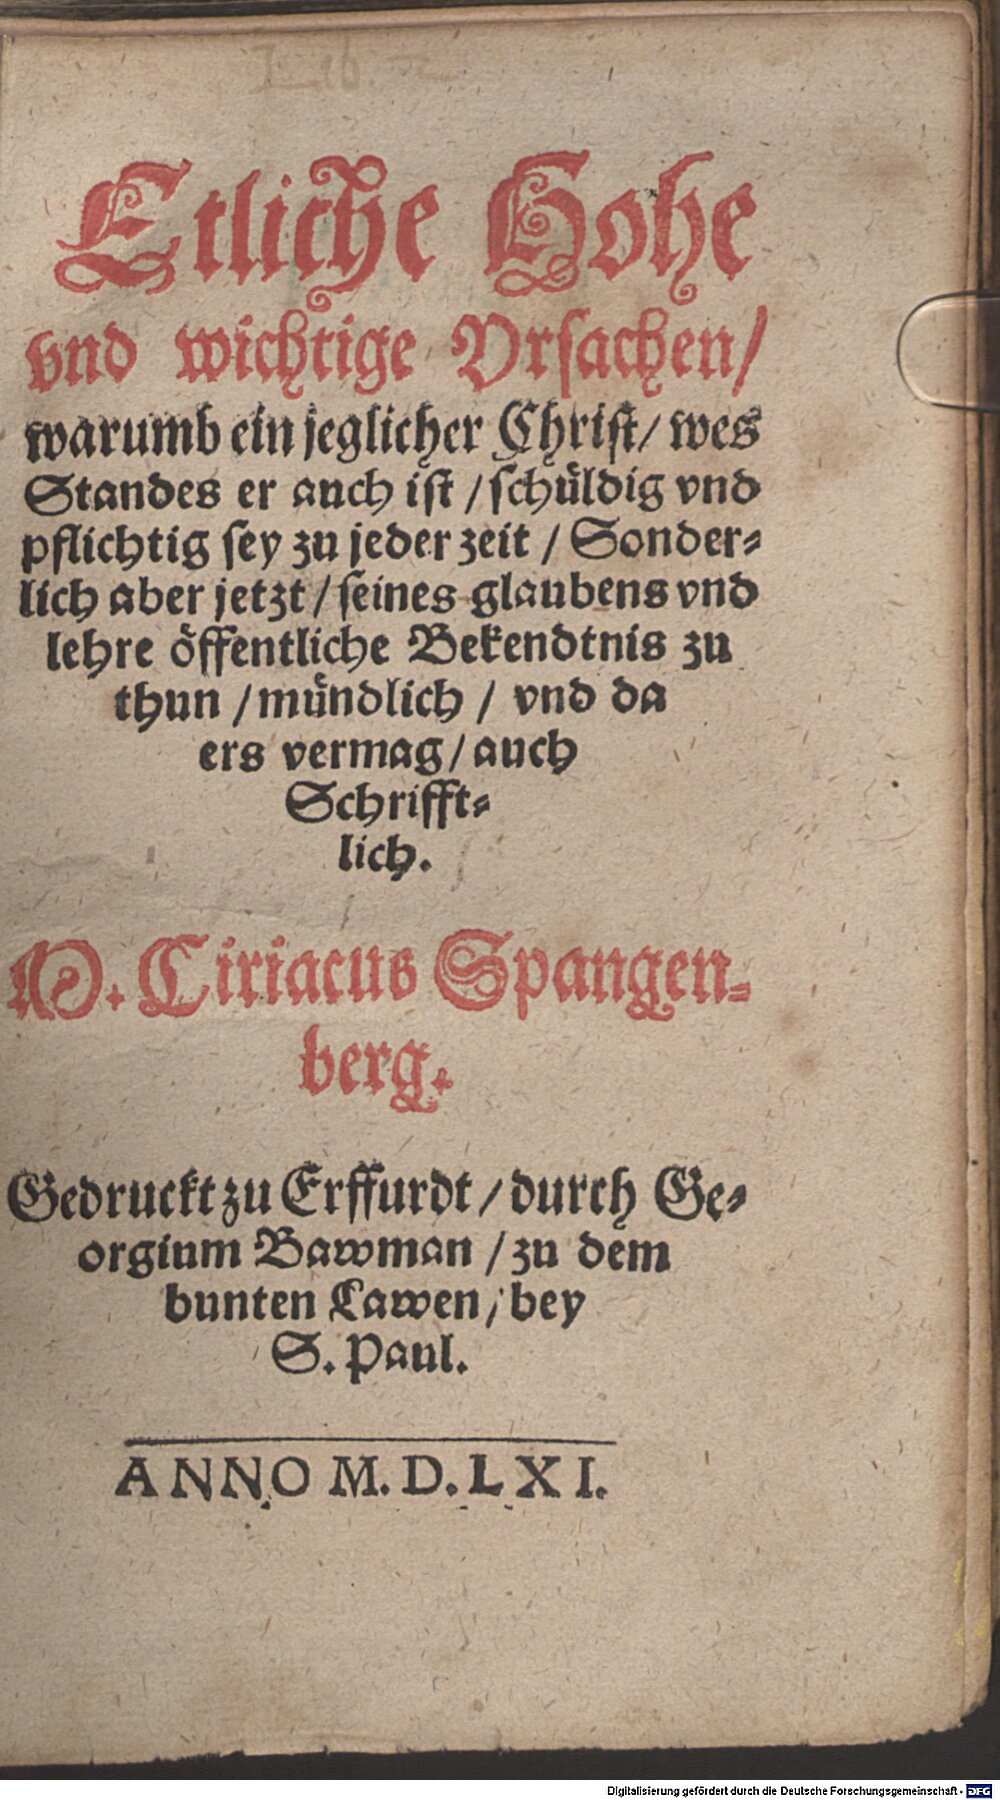 Etliche Hohe
vnd wichtige Vrsachen/
warumb ein jeglicher Christ/ wes
Standes er auch ist / schüldig vnd
pflichtig sey zu jeder zeit / Sonder-
lich aber jetzt / seines glaubens vnd
lehre öffentliche Bekendtnis zu
thun / mündlich / vnd da
ers vermag / auch
Schrifft-
lich.
M. Ciriacus Spangen-
berg.
Gedruckt zu Erffurdt / durch Ge-
orgium Bawman / zu dem
bunten Lawen / bey
S. Paul.
ANNO M. D. L X I.
Digitalisierung gefördert durch die Deutsche Forschungsgemeinschaft - DFG